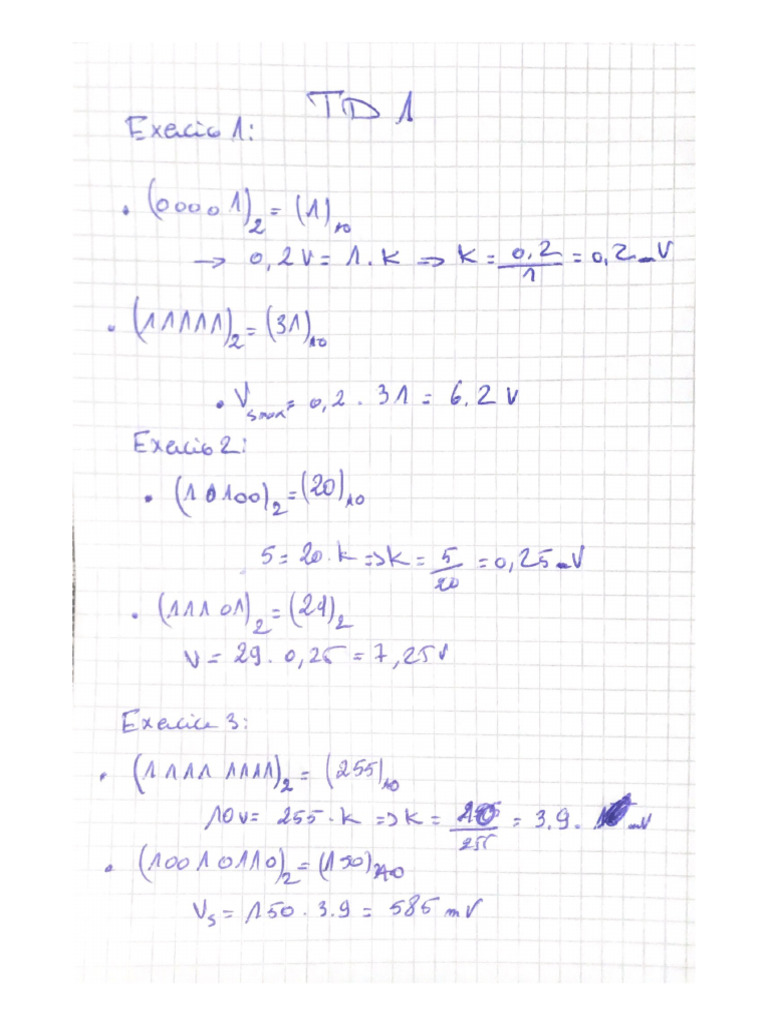 TD 1
Exercice 1:
• (00001)₂ = (1)₁₀
→ 0,2 V = 1 . K => K = 0,2/1 = 0,2 mV
• (11111)₂ = (31)₁₀
• Vsmax = 0,2 . 31 = 6.2 V
Exercice 2:
• (10100)₂ = (20)₁₀
5 = 20 . K => K = 5/20 = 0,25 mV
• (11101)₂ = (29)₂
V = 29 . 0,25 = 7,25 V
Exercice 3:
• (1111 1111)₂ = (255)₁₀
10 V = 255 . K => K = 10/255 = 3.9 . mV
• (1001 0110)₂ = (150)₁₀
Vs = 150 . 3.9 = 585 mV